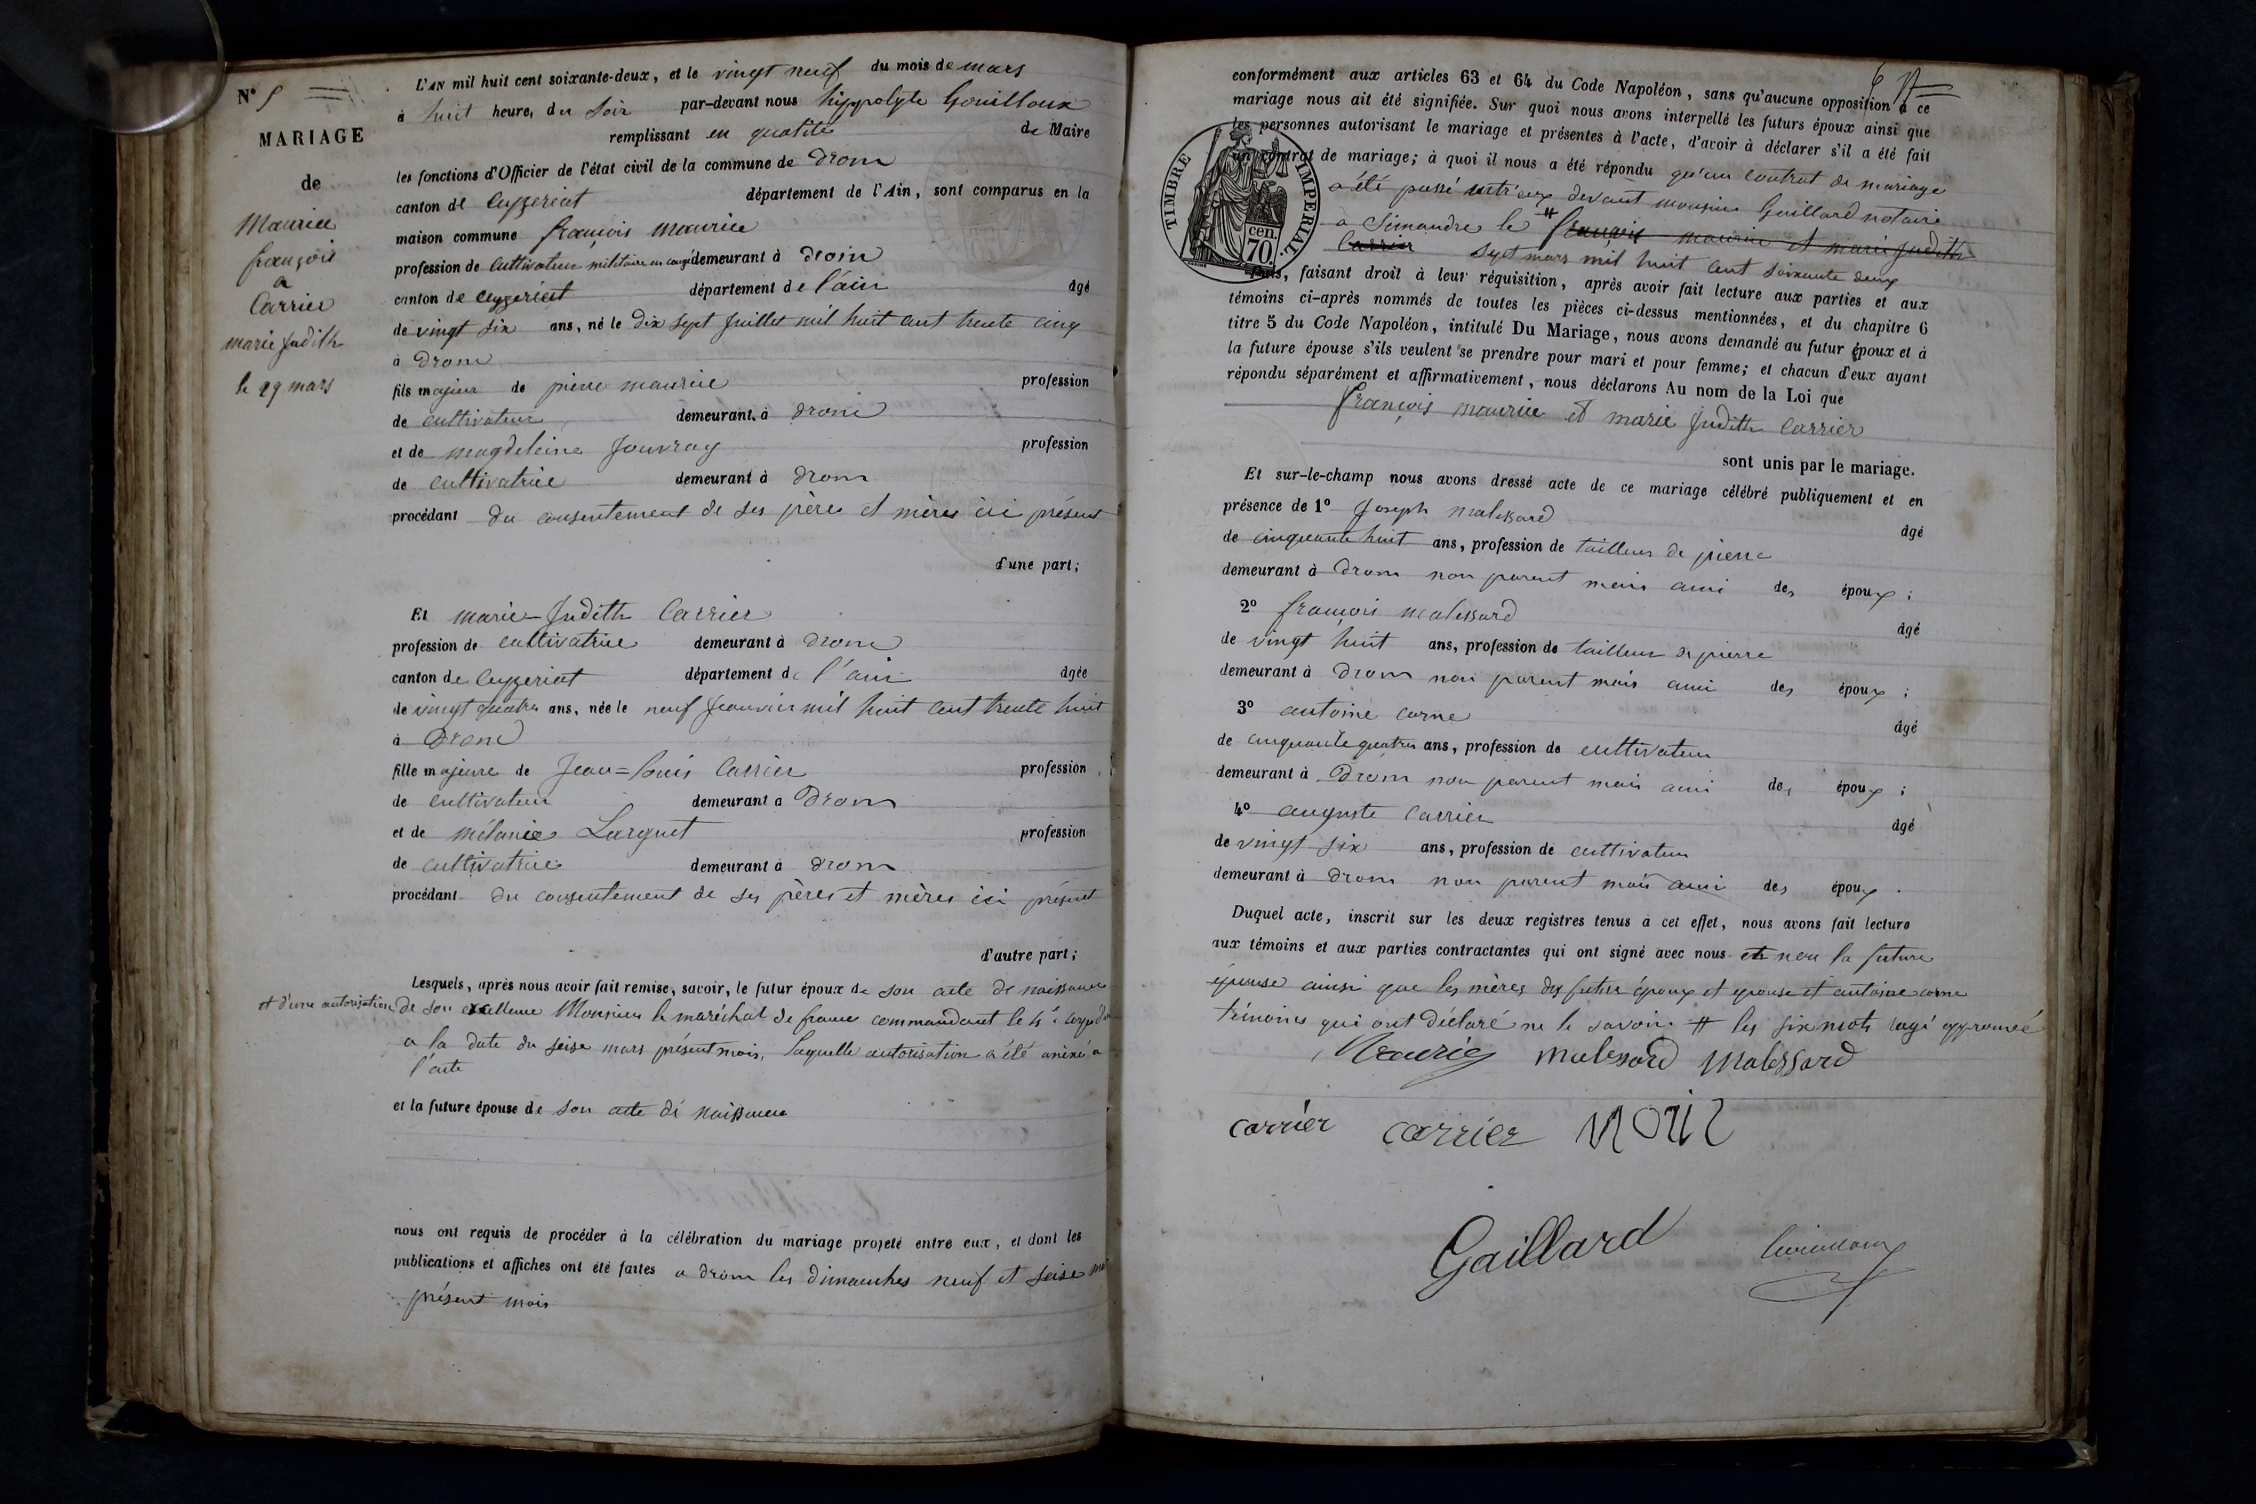 N° 5
MARIAGE
de
Maurice
françois
a
Carrier
marie Judith
le 29 mars
L'AN mil huit cent soixante-deux, et le vingt neuf du mois de mars
à huit heures du soir par-devant nous hyppolyte Gouilloux
remplissant en qualité de Maire
les fonctions d'Officier de l'état civil de la commune de Drom
canton de Ceyzeriat département de l'Ain, sont comparus en la
maison commune françois maurice
profession de cultivateur militaire en congé demeurant à drom
canton de ceyzeriat département de l'ain âgé
de vingt six ans, né le dix sept Juillet mil huit cent trente cinq
à Drom
fils majeur de pierre maurice profession
de cultivateur demeurant à drom
et de magdeleine Jouvray profession
de cultivatrice demeurant à drom
procédant du consentement de ses pères et mères ici présent
d'une part;
Et marie Judith Carrier
profession de cultivatrice demeurant à drom
canton de Ceyzeriat département de l'ain âgée
de vingt quatre ans, née le neuf Janvier mil huit cent trente huit
à Drom
fille majeure de Jean=Louis Carrier profession
de cultivateur demeurant à Drom
et de mélanie Larguet profession
de cultivatrice demeurant à drom
procédant du consentement de ses pères et mères ici présent
d'autre part;
Lesquels, après nous avoir fait remise, savoir, le futur époux de son acte de naissance
et d'une autorisation de son excellence Monsieur le maréchal de france commandant le 4e corps
a la date du seise mars présent mois, laquelle autorisation a été anexé a
l'acte
et la future épouse de son acte de naissance
nous ont requis de procéder à la célébration du mariage projeté entre eux, et dont les
publications et affiches ont été faites a drom les dimanches neuf et seise
présent mois
conformément aux articles 63 et 64 du Code Napoléon, sans qu'aucune opposition à ce
mariage nous ait été signifiée. Sur quoi nous avons interpellé les futurs époux ainsi que
les personnes autorisant le mariage et présentes à l'acte, d'avoir à déclarer s'il a été fait
un contrat de mariage; à quoi il nous a été répondu qu'un contrat de mariage
a été passé entr'eux devant monsieur Gaillard notaire
à Simandre le # françois maurice et marie Judith
Carrier sept mars mil huit cent soixante deux
TIMBRE IMPERIAL
70 cen.
Puis, faisant droit à leur réquisition, après avoir fait lecture aux parties et aux
témoins ci-après nommés de toutes les pièces ci-dessus mentionnées, et du chapitre 6
titre 5 du Code Napoléon, intitulé Du Mariage, nous avons demandé au futur époux et à
la future épouse s'ils veulent se prendre pour mari et pour femme; et chacun d'eux ayant
répondu séparément et affirmativement, nous déclarons Au nom de la Loi que
françois maurice et marie Judith Carrier
sont unis par le mariage.
Et sur-le-champ nous avons dressé acte de ce mariage célébré publiquement et en
présence de 1° Joseph malessard âgé
de cinquante huit ans, profession de tailleur de pierre
demeurant à Drom non parent mais ami des époux;
2° françois malessard âgé
de vingt huit ans, profession de tailleur de pierre
demeurant à Drom non parent mais ami des époux;
3° antoine carne âgé
de cinquante quatre ans, profession de cultivateur
demeurant à Drom non parent mais ami des époux;
4° auguste Carrier âgé
de vingt six ans, profession de cultivateur
demeurant à Drom non parent mais ami des époux.
Duquel acte, inscrit sur les deux registres tenus à cet effet, nous avons fait lecture
aux témoins et aux parties contractantes qui ont signé avec nous et non la future
épouse ainsi que les mères des futur époux et epouse et antoine carne
témoins qui ont déclaré ne le savoir # les six mots rayé approuvé
Maurice malessard Malessard
carrier carrier MORIS
Gaillard Gouilloux